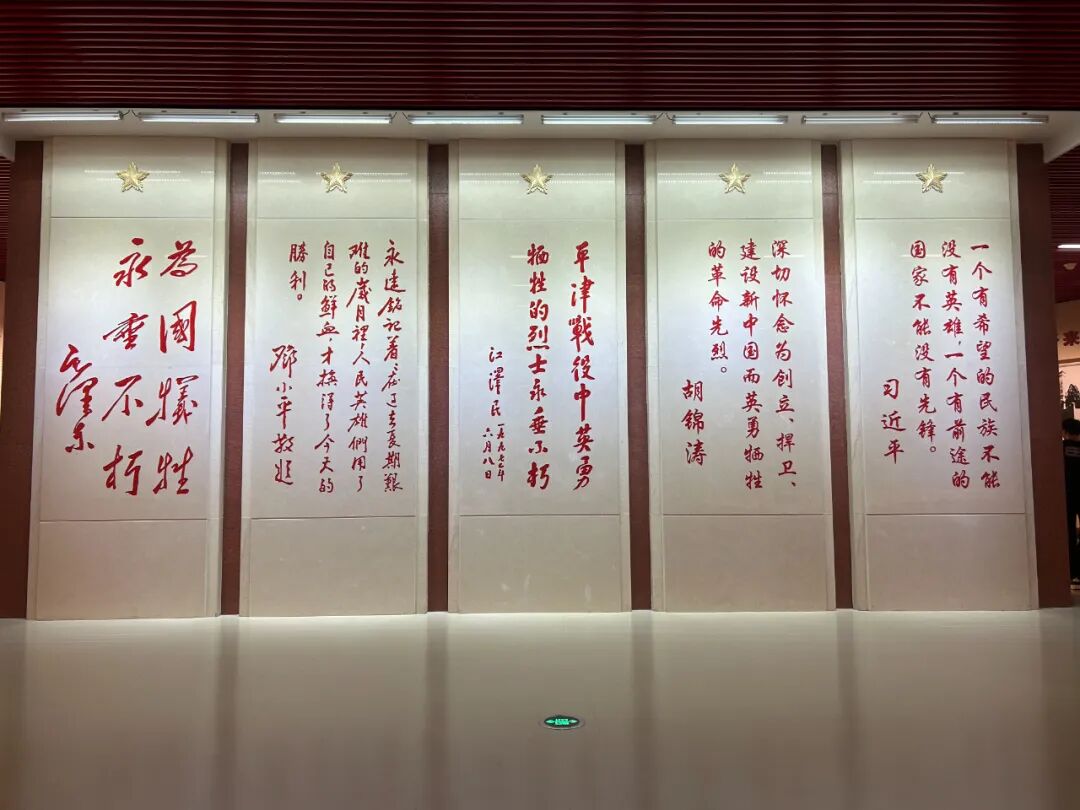 為國犧牲
永垂不朽
毛澤东
永远銘記着,在过去最艱
难的歲月裡,人民英雄們用了
自己的鲜血,才換得了今天的
勝利。
鄧小平敬题
平津戰役中英勇
牺牲的烈士永垂不朽
江澤民一九九七年
六月八日
深切怀念为创立、捍卫、
建设新中国而英勇牺牲
的革命先烈。
胡锦涛
一个有希望的民族不能
没有英雄,一个有前途的
国家不能没有先锋。
习近平
来